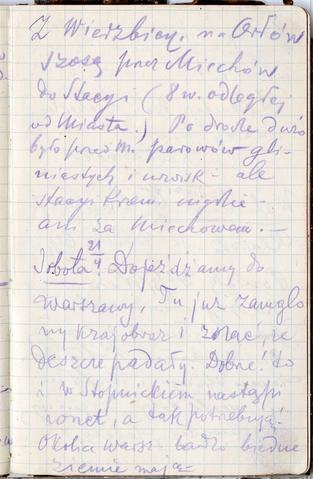 Z Wierzbicy, na Orłów
szosą przez Miechów
do Stacyi (8 w. odległej
od Miasta.) Po drodze dużo
było przed M. parowów gli-
niastych i urwisk - ale
Stacyi Krzem. nigdzie -
ani za Miechowem. -
Sobota 21/4 Dojeżdżamy do
Warszawy, Tu już zamglo
ny krajobraz i znać, że
deszcze padały. Dobre! to
i w Stopnickiem nastąpi
, a tak potrzebują!
Okolica Warsz. bardzo biedne
ziemie mają -